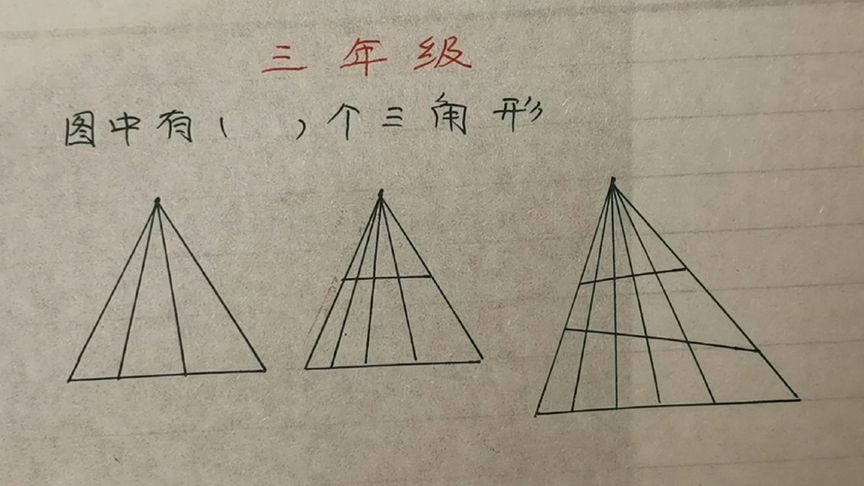 三年级
图中有（ ）个三角形